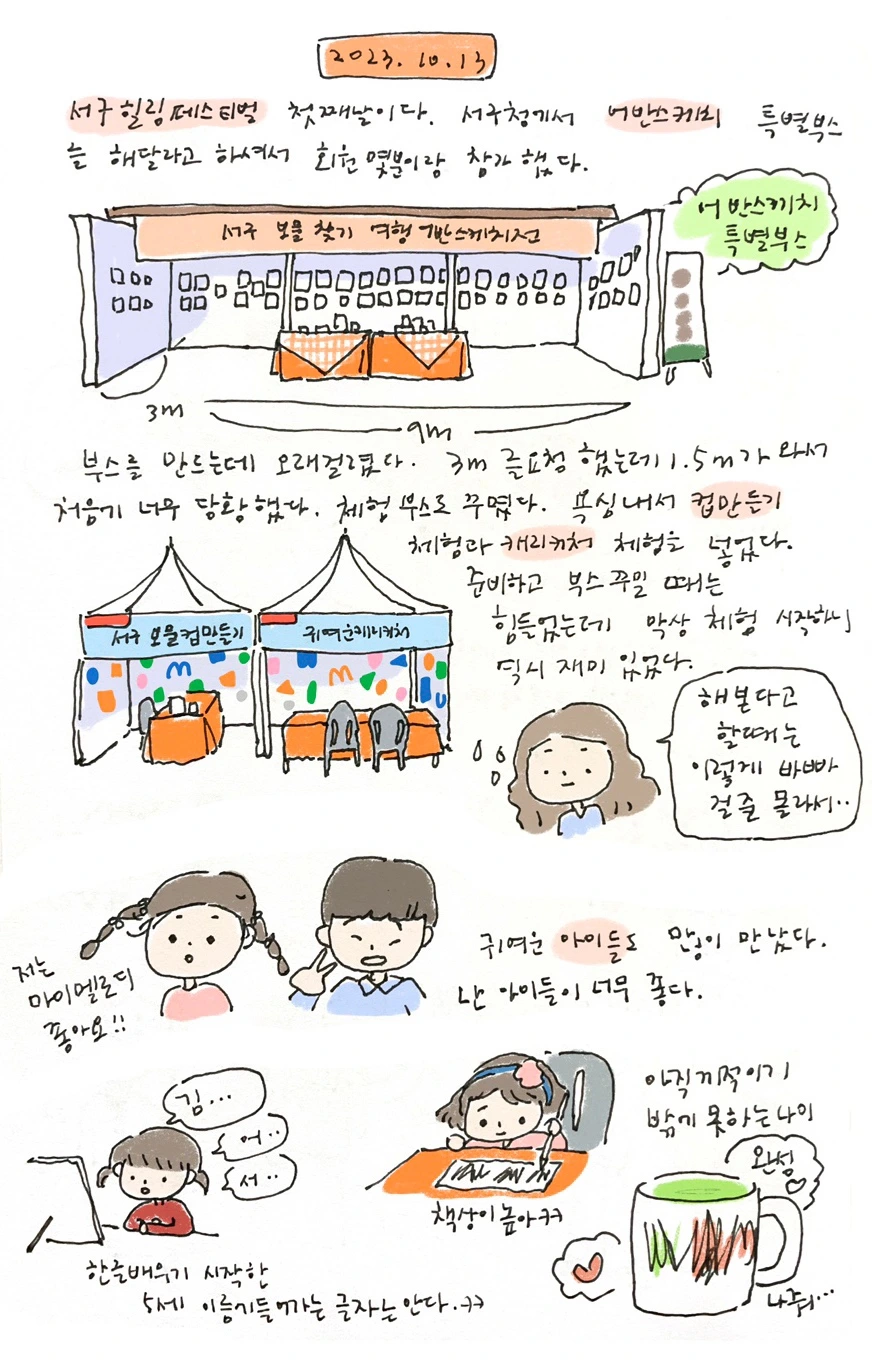 2023. 10. 13
서구힐링페스티벌 첫째날이다. 서구청에서 어반스케치 특별부스
를 해달라고 하셔서 회원 몇분이랑 참가 했다.
어반스케치
특별부스
서구 보물 찾기 여행 어반스케치전
3m
9m
부스를 만드는데 오래걸렸다. 3m 를요청 했는데 1.5m가 와서
처음에 너무 당황했다. 체험 부스도 꾸몄다. 욕심내서 컵만들기
체험과 캐리커처 체험을 넣었다.
준비하고 부스 꾸밀 때는
힘들었는데 막상 체험 시작하니
역시 재미 있었다.
서구 보물컵만들기
귀여운캐리커처
해본다고
할때는
이렇게 바빠
걸줄 몰라서..
저는
마이멜로디
좋아요!!
귀여운 아이들도 많이 만났다.
난 아이들이 너무 좋다.
김...
어..
서..
한글배우기 시작한
5세 이름에들어가는 글자는 안다.ㅋㅋ
책상이높아ㅋㅋ
아직끼적이기
밖에 못하는 나이
완성
나줘...